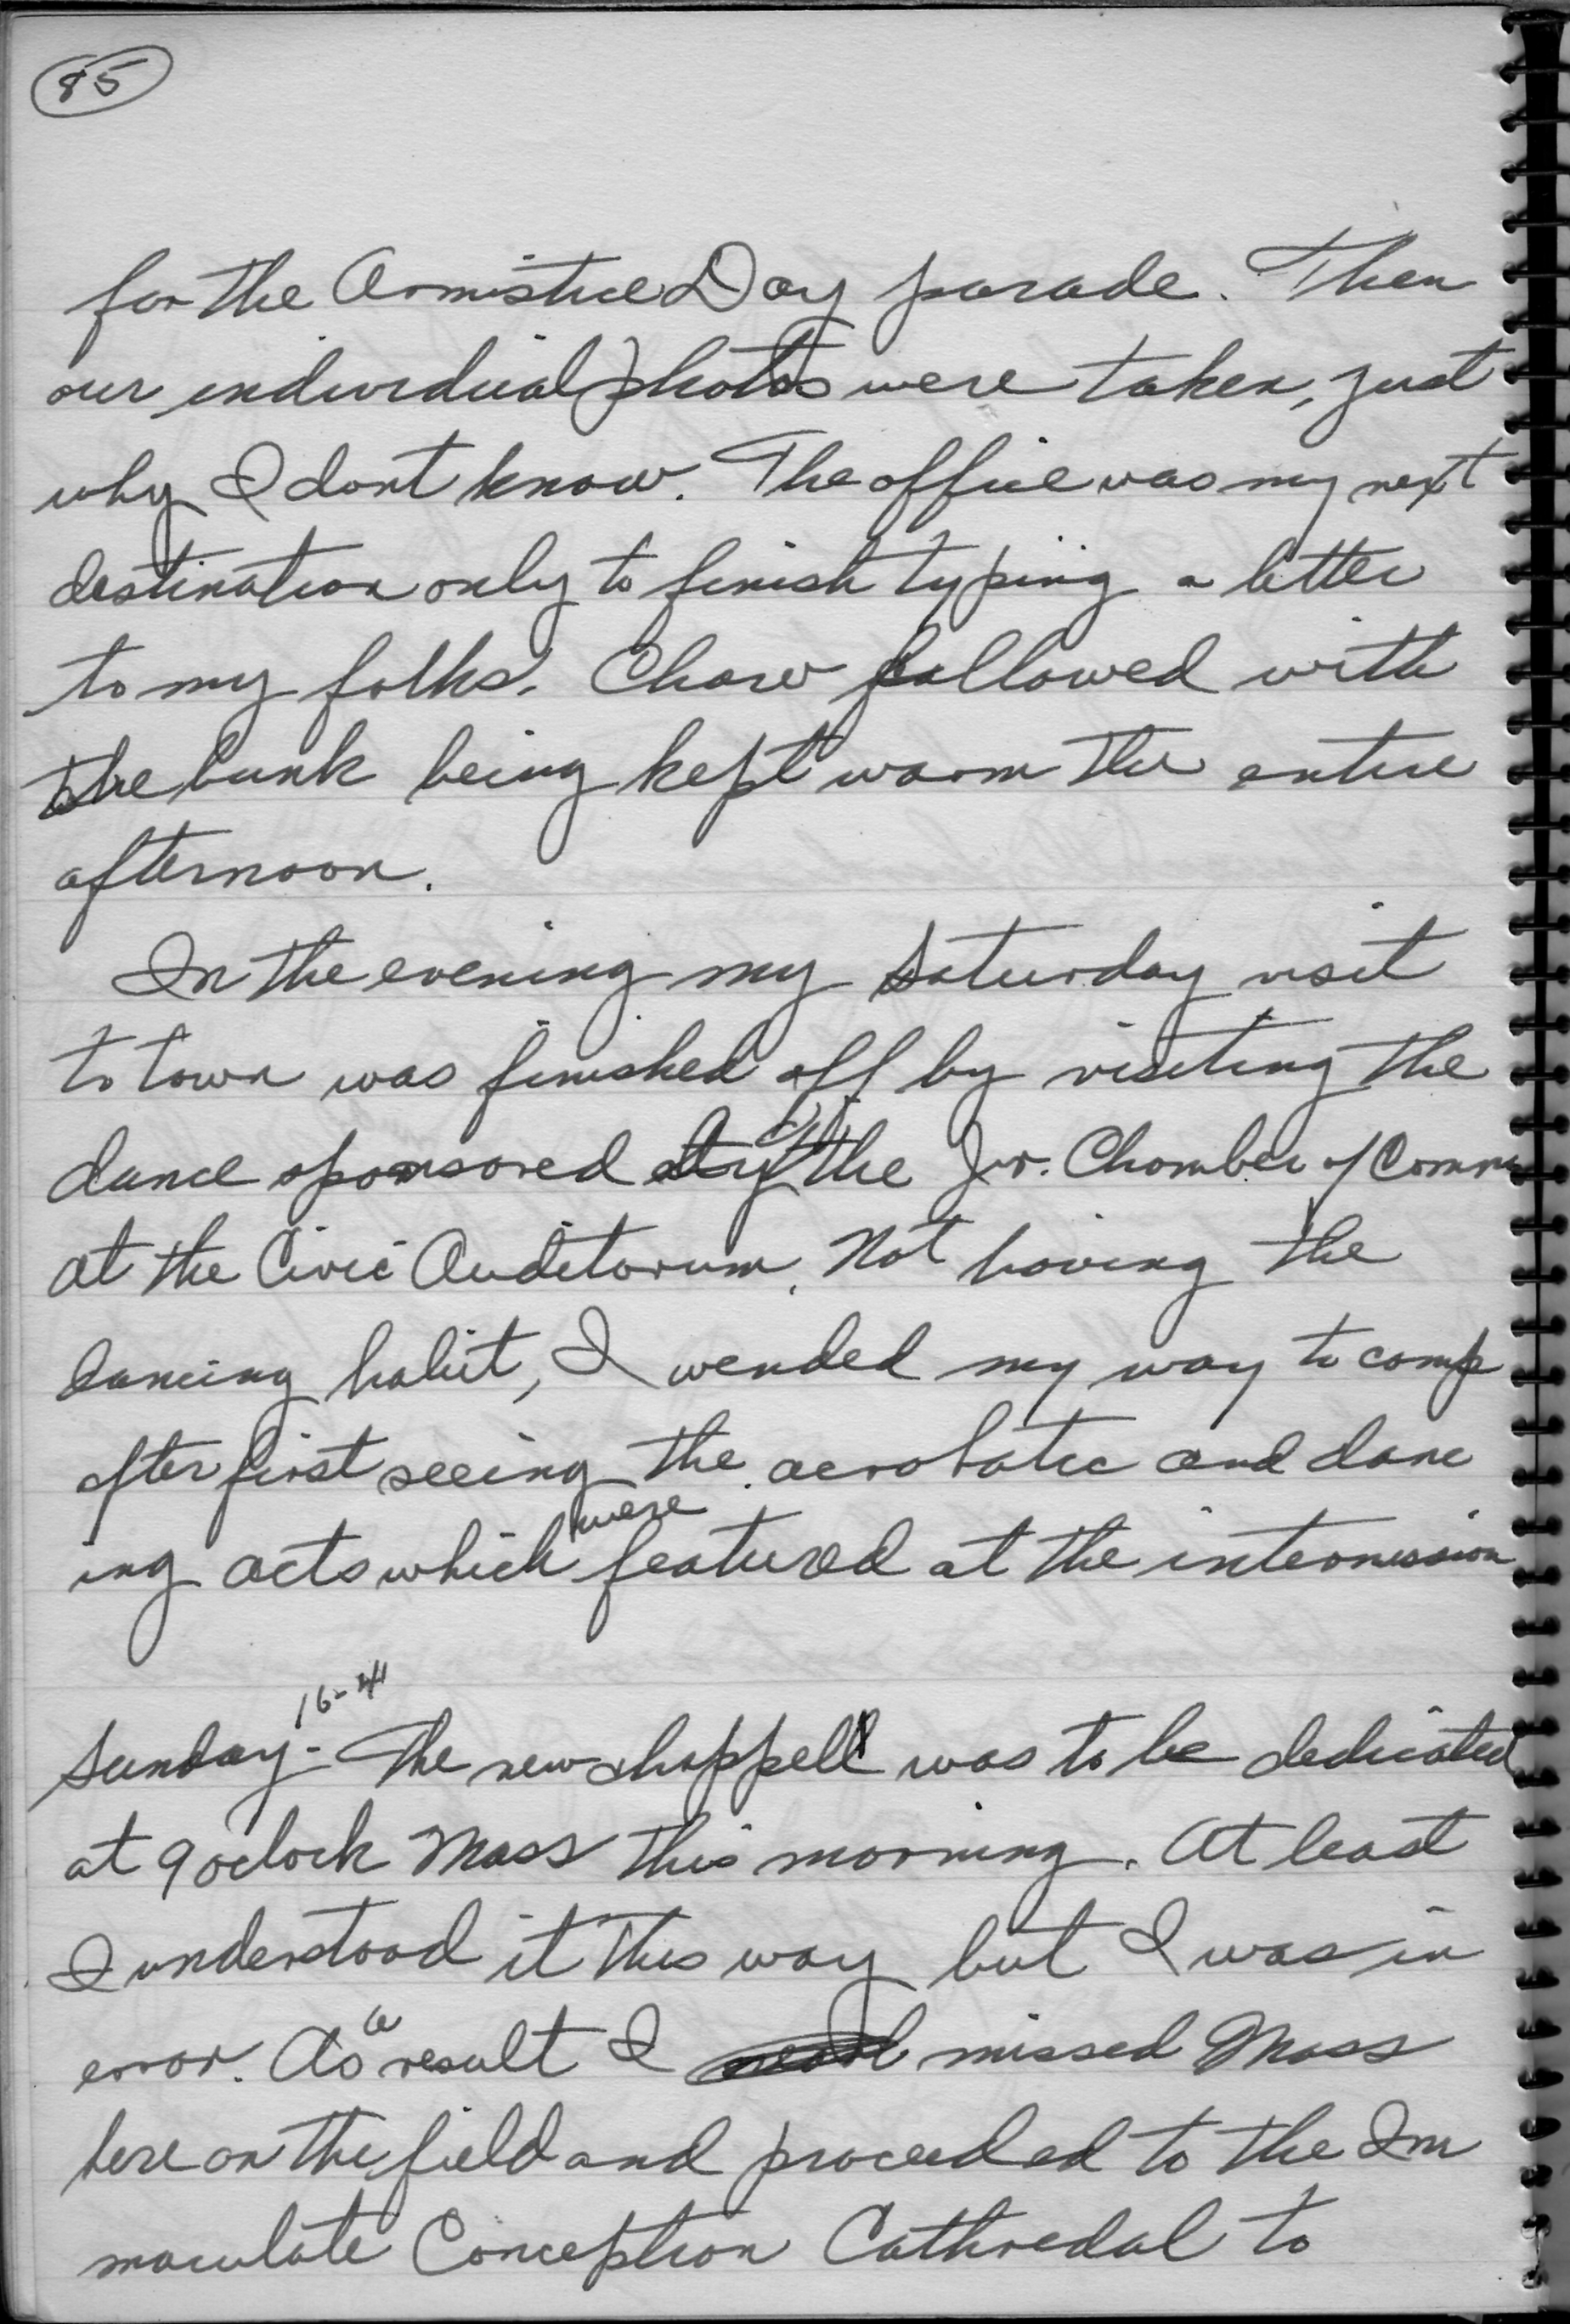 85
for the Armistice Day parade. Then
our individual photos were taken, just
why I dont know. The office was my next
destination only to finish typing a letter
to my folks. Chow followed with
the bunk being kept warm the entire
afternoon.
In the evening my Saturday visit
to town was finished off by visiting the
dance sponsored by the Jr. Chamber of Comm
at the Civic Auditorum. Not having the
dancing habit, I wended my way to camp
after first seeing the acrobatic and danc
ing acts which were featured at the intermission
16-41
Sunday - The new chappell was to be dedicated
at 9 oclock Mass this morning. At least
I understood it this way but I was in
error. As a result I missed Mass
here on the field and proceeded to the Im
maculate Conception Cathredal to